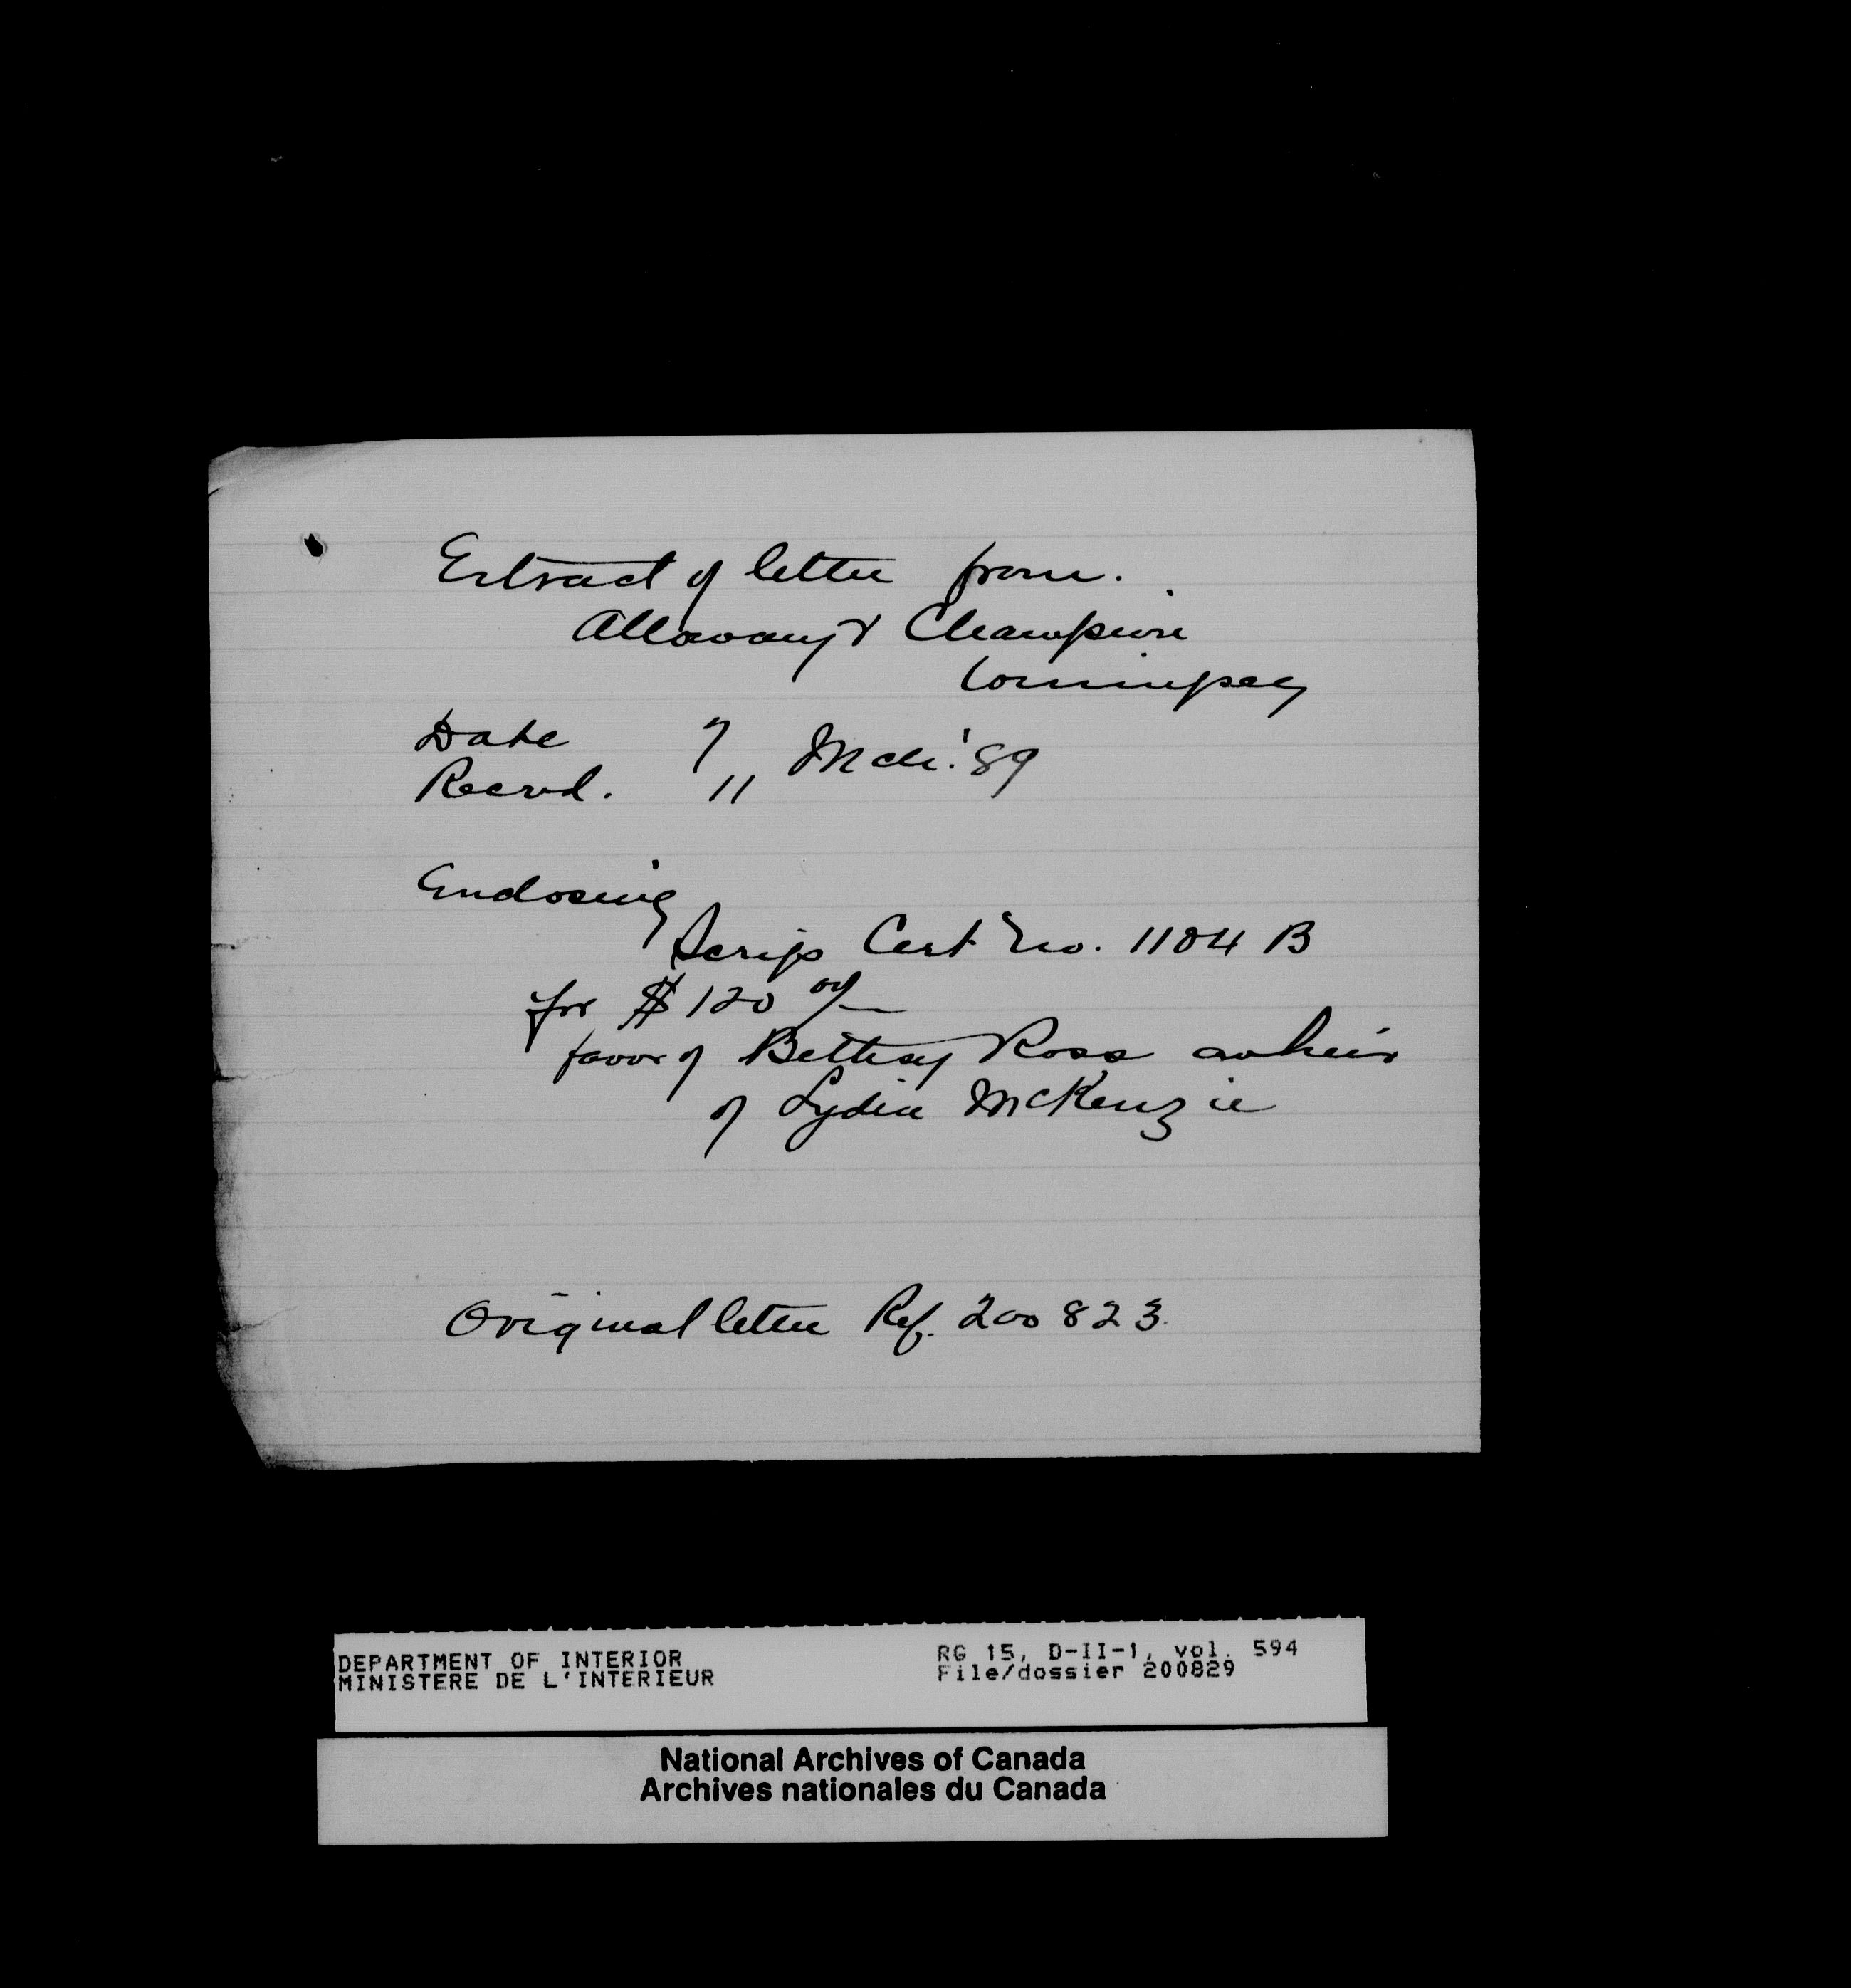 Extract of letter from.
Alloway & Champion
Winnipeg
Date 7
Mch. '89
Recvd. 11
Enclosing
Scrip Cert No. 1184 B
for $120 00/
favor of Bettsey Ross as heir
of Lydia McKenzie
Original letter Ref. 200823.
DEPARTMENT OF INTERIOR RG 15, D-II-1, vol. 594
MINISTERE DE L'INTERIEUR File/dossier 200829
National Archives of Canada
Archives nationales du Canada